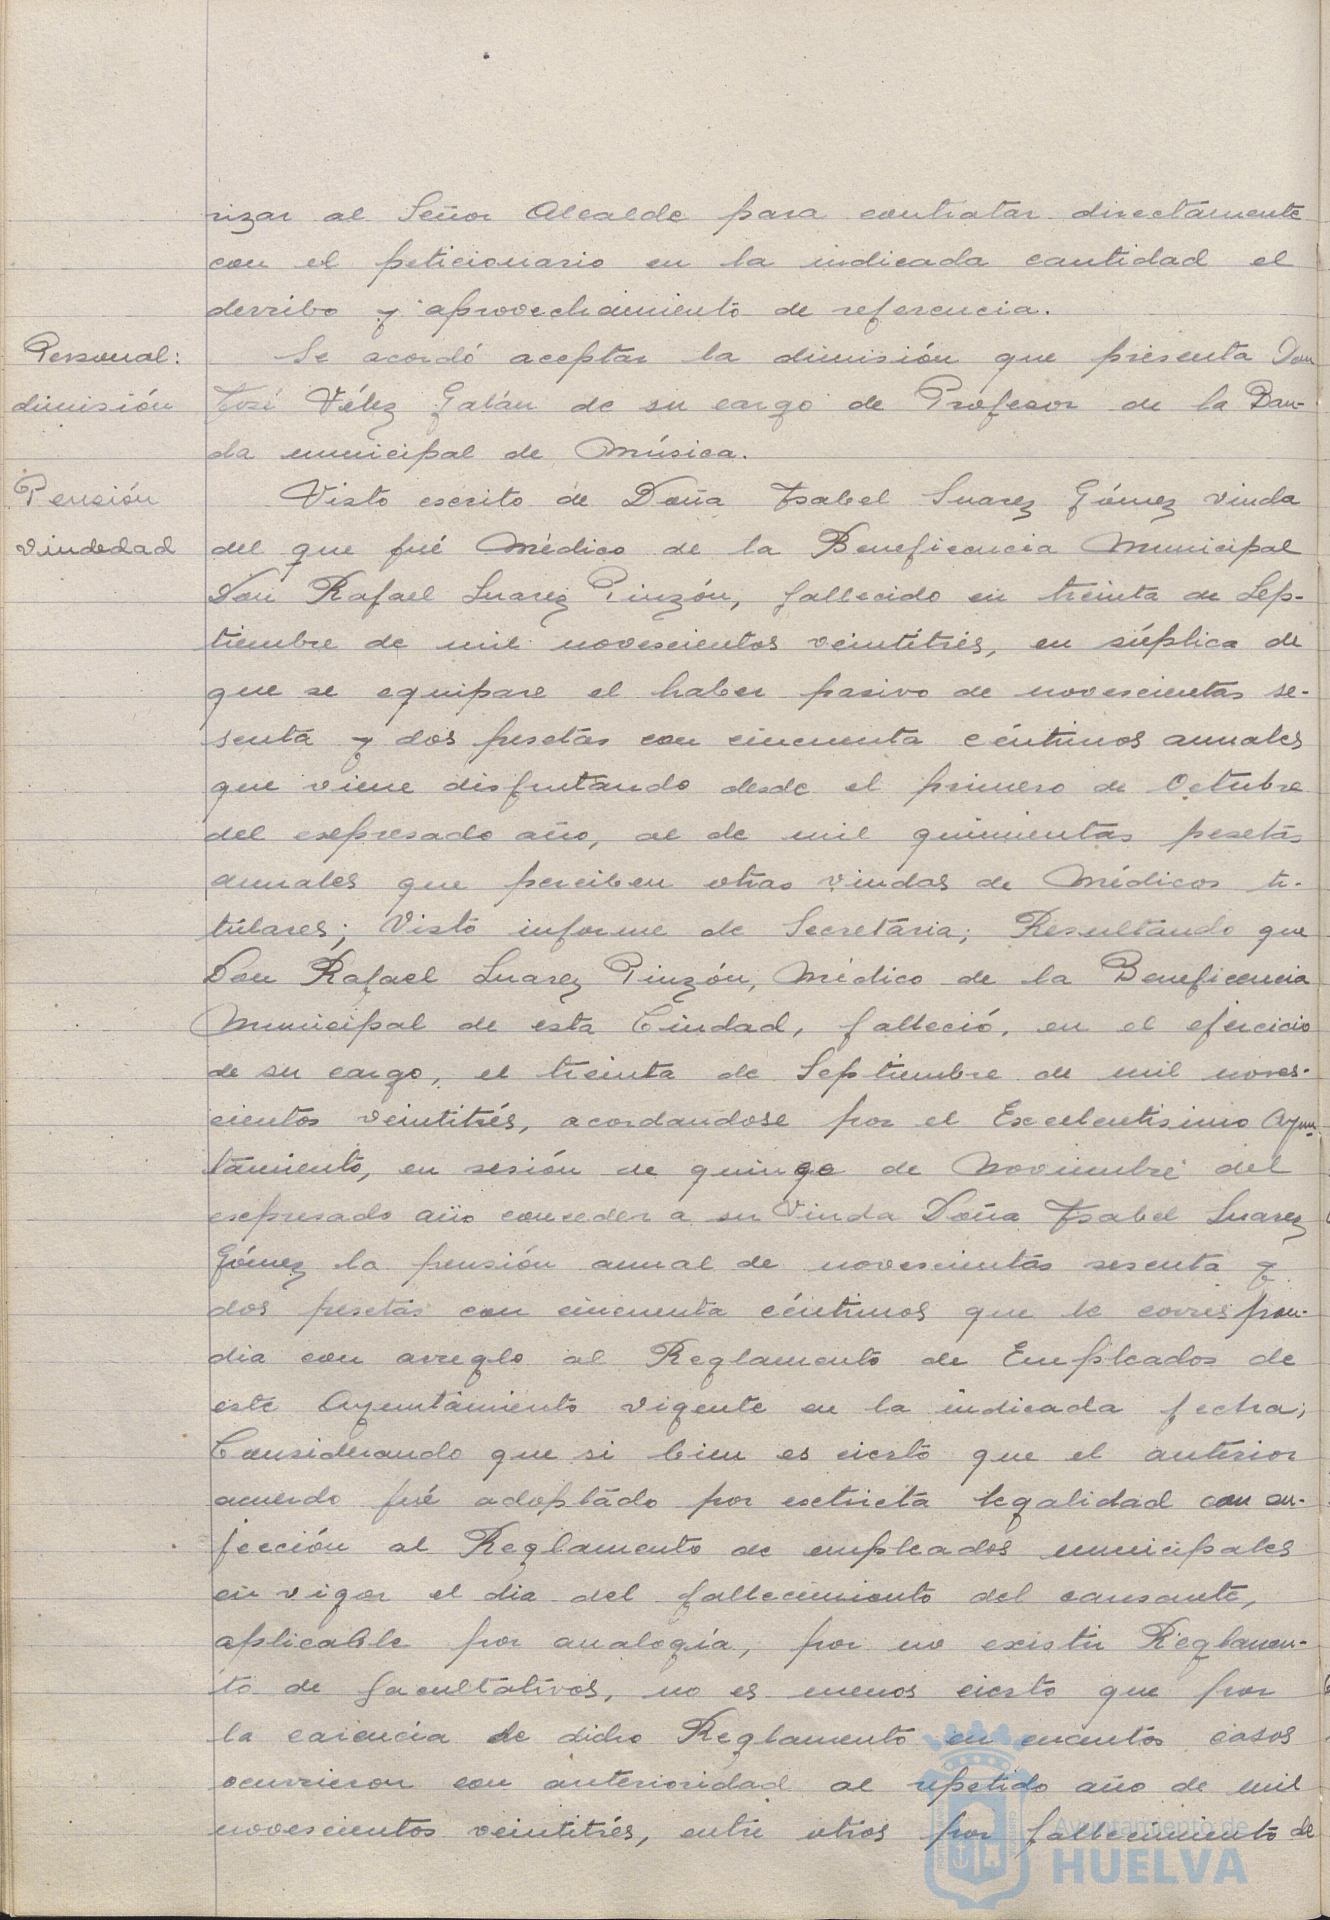 rizar al Señor Alcalde para contratar directamente
con el peticionario en la indicada cantidad el
derribo y aprovechamiento de referencia.
Personal:
dimisión
Se acordó aceptar la dimisión que presenta Don
José Vélez Galán de su cargo de Profesor de la Ban-
da municipal de Música.
Pensión
viudedad
Visto escrito de Doña Isabel Suarez Gómez viuda
del que fué Médico de la Beneficencia Municipal
Don Rafael Suarez Pinzón, fallecido en treinta de Sep-
tiembre de mil novescientos veintitrés, en súplica de
que se equipare el haber pasivo de novescientas se-
senta y dos pesetas con cincuenta céntimos anuales
que viene disfrutando desde el primero de Octubre
del expresado año, al de mil quinientas pesetas
anuales que perciben otras viudas de Médicos ti-
tulares; Visto informe de Secretaria; Resultando que
Don Rafael Suarez Pinzón, Médico de la Beneficencia
Municipal de esta Ciudad, falleció, en el ejercicio
de su cargo, el treinta de Septiembre de mil noves-
cientos veintitrés, acordandose por el Excelentisimo Ayun-
tamiento, en sesión de quince de Noviembre del
expresado año conceder a su Viuda Doña Isabel Suarez
Gómez la pensión anual de novescientas sesenta y
dos pesetas con cincuenta céntimos que le correspon-
dia con arreglo al Reglamento de Empleados de
este Ayuntamiento vigente en la indicada fecha;
Considerando que si bien es cierto que el anterior
acuerdo fué adoptado por extricta legalidad con su-
jección al Reglamento de empleados municipales
en vigor el dia del fallecimiento del causante,
aplicable por analogía, por no existir Reglamen-
to de facultativos, no es menos cierto que por
la carencia de dicho Reglamento en cuantos casos
ocurrieron con anterioridad al repetido año de mil
novescientos veintitrés, entre otros por fallecimiento de
Ayuntamiento de
HUELVA